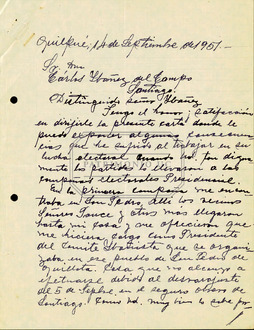 Quilpué, 14 de Septiembre de 1951.-
Sr. Don
Carlos Ibáñez del Campo
Santiago.
Distinguido señor Ibáñez
Tengo el honor y satisfacción
en dirigirle la presente carta donde le
puedo exponer algunas consecuen
cias que he sufrido al trabajar en su
lucha electoral cuando Ud. tan digna
mente los partidos lo llevaron a las
campañas electorales Presidencial.
En la primera campaña me encon
traba en San Pedro. Allí los vecinos
Señores Ponce y otros más llegaron
hasta mi casa y me ofrecieron que
me hiciera cargo como Presidente
del Comité Ibañista que se organi
zaba en ese pueblo de San Pedro de
Quillota. Cosa que no alcanzo a
efectuarse debido al
5 de Septbre. en el seguro obrero de
Santiago. Como Ud. muy bien lo sabe por